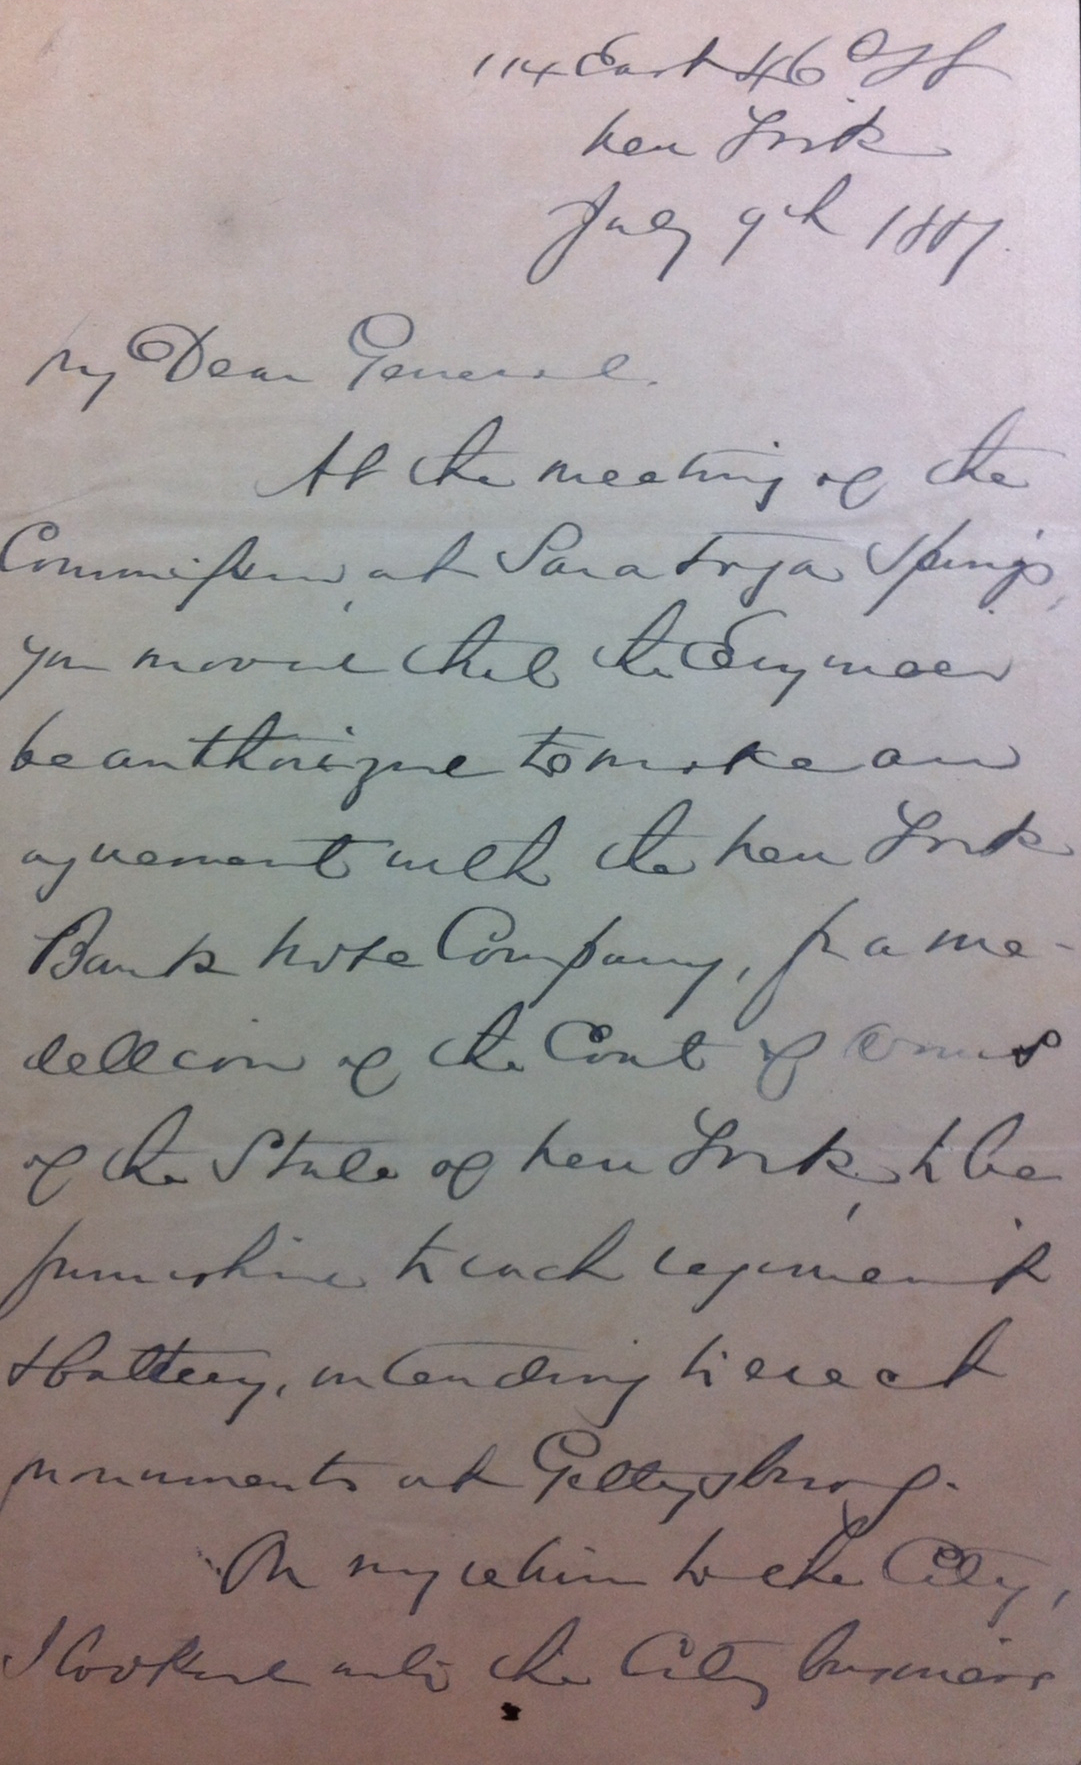 114 East 46th St
New York
July 9th 1887.
My Dear General.
At the meeting of the
Commission, at Saratoga Springs,
you moved that the Engineer
be authorized to make an
agreement with the New York
Bank Note Company, for a me-
dallion of the Coat of Arms
of the State of New York, to be
furnished to each regiment
& battery, intending to erect
monuments at Gettysburg.
On my return to the City,
I looked into the City business